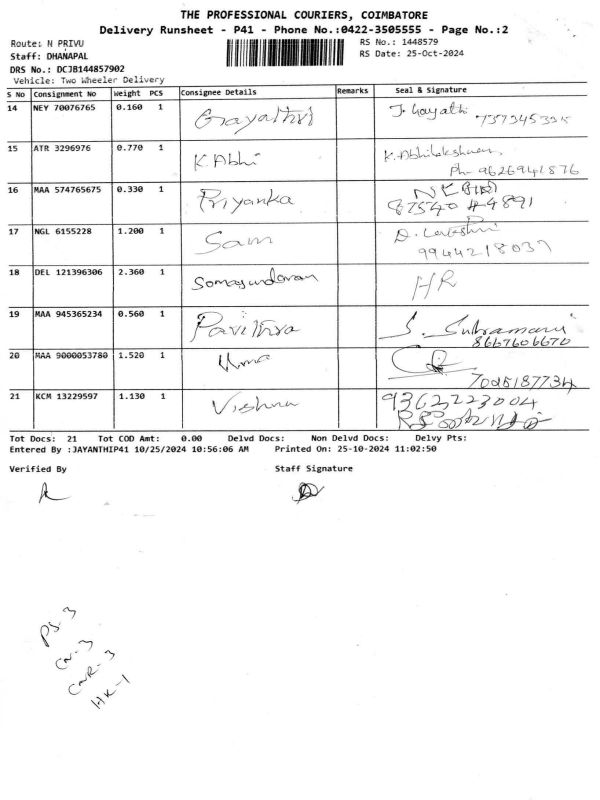 THE PROFESSIONAL COURIERS, COIMBATORE
Delivery Runsheet - P41 - Phone No.:0422-3505555 - Page No.:2
Route: N PRIVU RS No.: 1448579
Staff: DHANAPAL RS Date: 25-Oct-2024
DRS No.: DCJB144857902
Vehicle: Two Wheeler Delivery
S No Consignment No Weight PCS Consignee Details Remarks Seal & Signature
14 NEY 70076765 0.160 1 Gayathri J. Gayathi
15 ATR 3296976 0.770 1 K.Abhi K.Abhilakshman
Ph- 9626941876
16 MAA 574765675 0.330 1 Priyanka
17 NGL 6155228 1.200 1 Sam D. Lakshmi
9944218037
18 DEL 121396306 2.360 1 Somasundaram HR
19 MAA 945365234 0.560 1 Pavithra S. Subramani
8667606670
20 MAA 9000053780 1.520 1 Uma
7005187734
21 KCM 13229597 1.130 1 Vishnu 9362223004
Tot Docs: 21 Tot COD Amt: 0.00 Delvd Docs: Non Delvd Docs: Delvy Pts:
Entered By :JAYANTHIP41 10/25/2024 10:56:06 AM Printed On: 25-10-2024 11:02:50
Verified By Staff Signature
PS-3
CN-3
CNR-3
HK-1